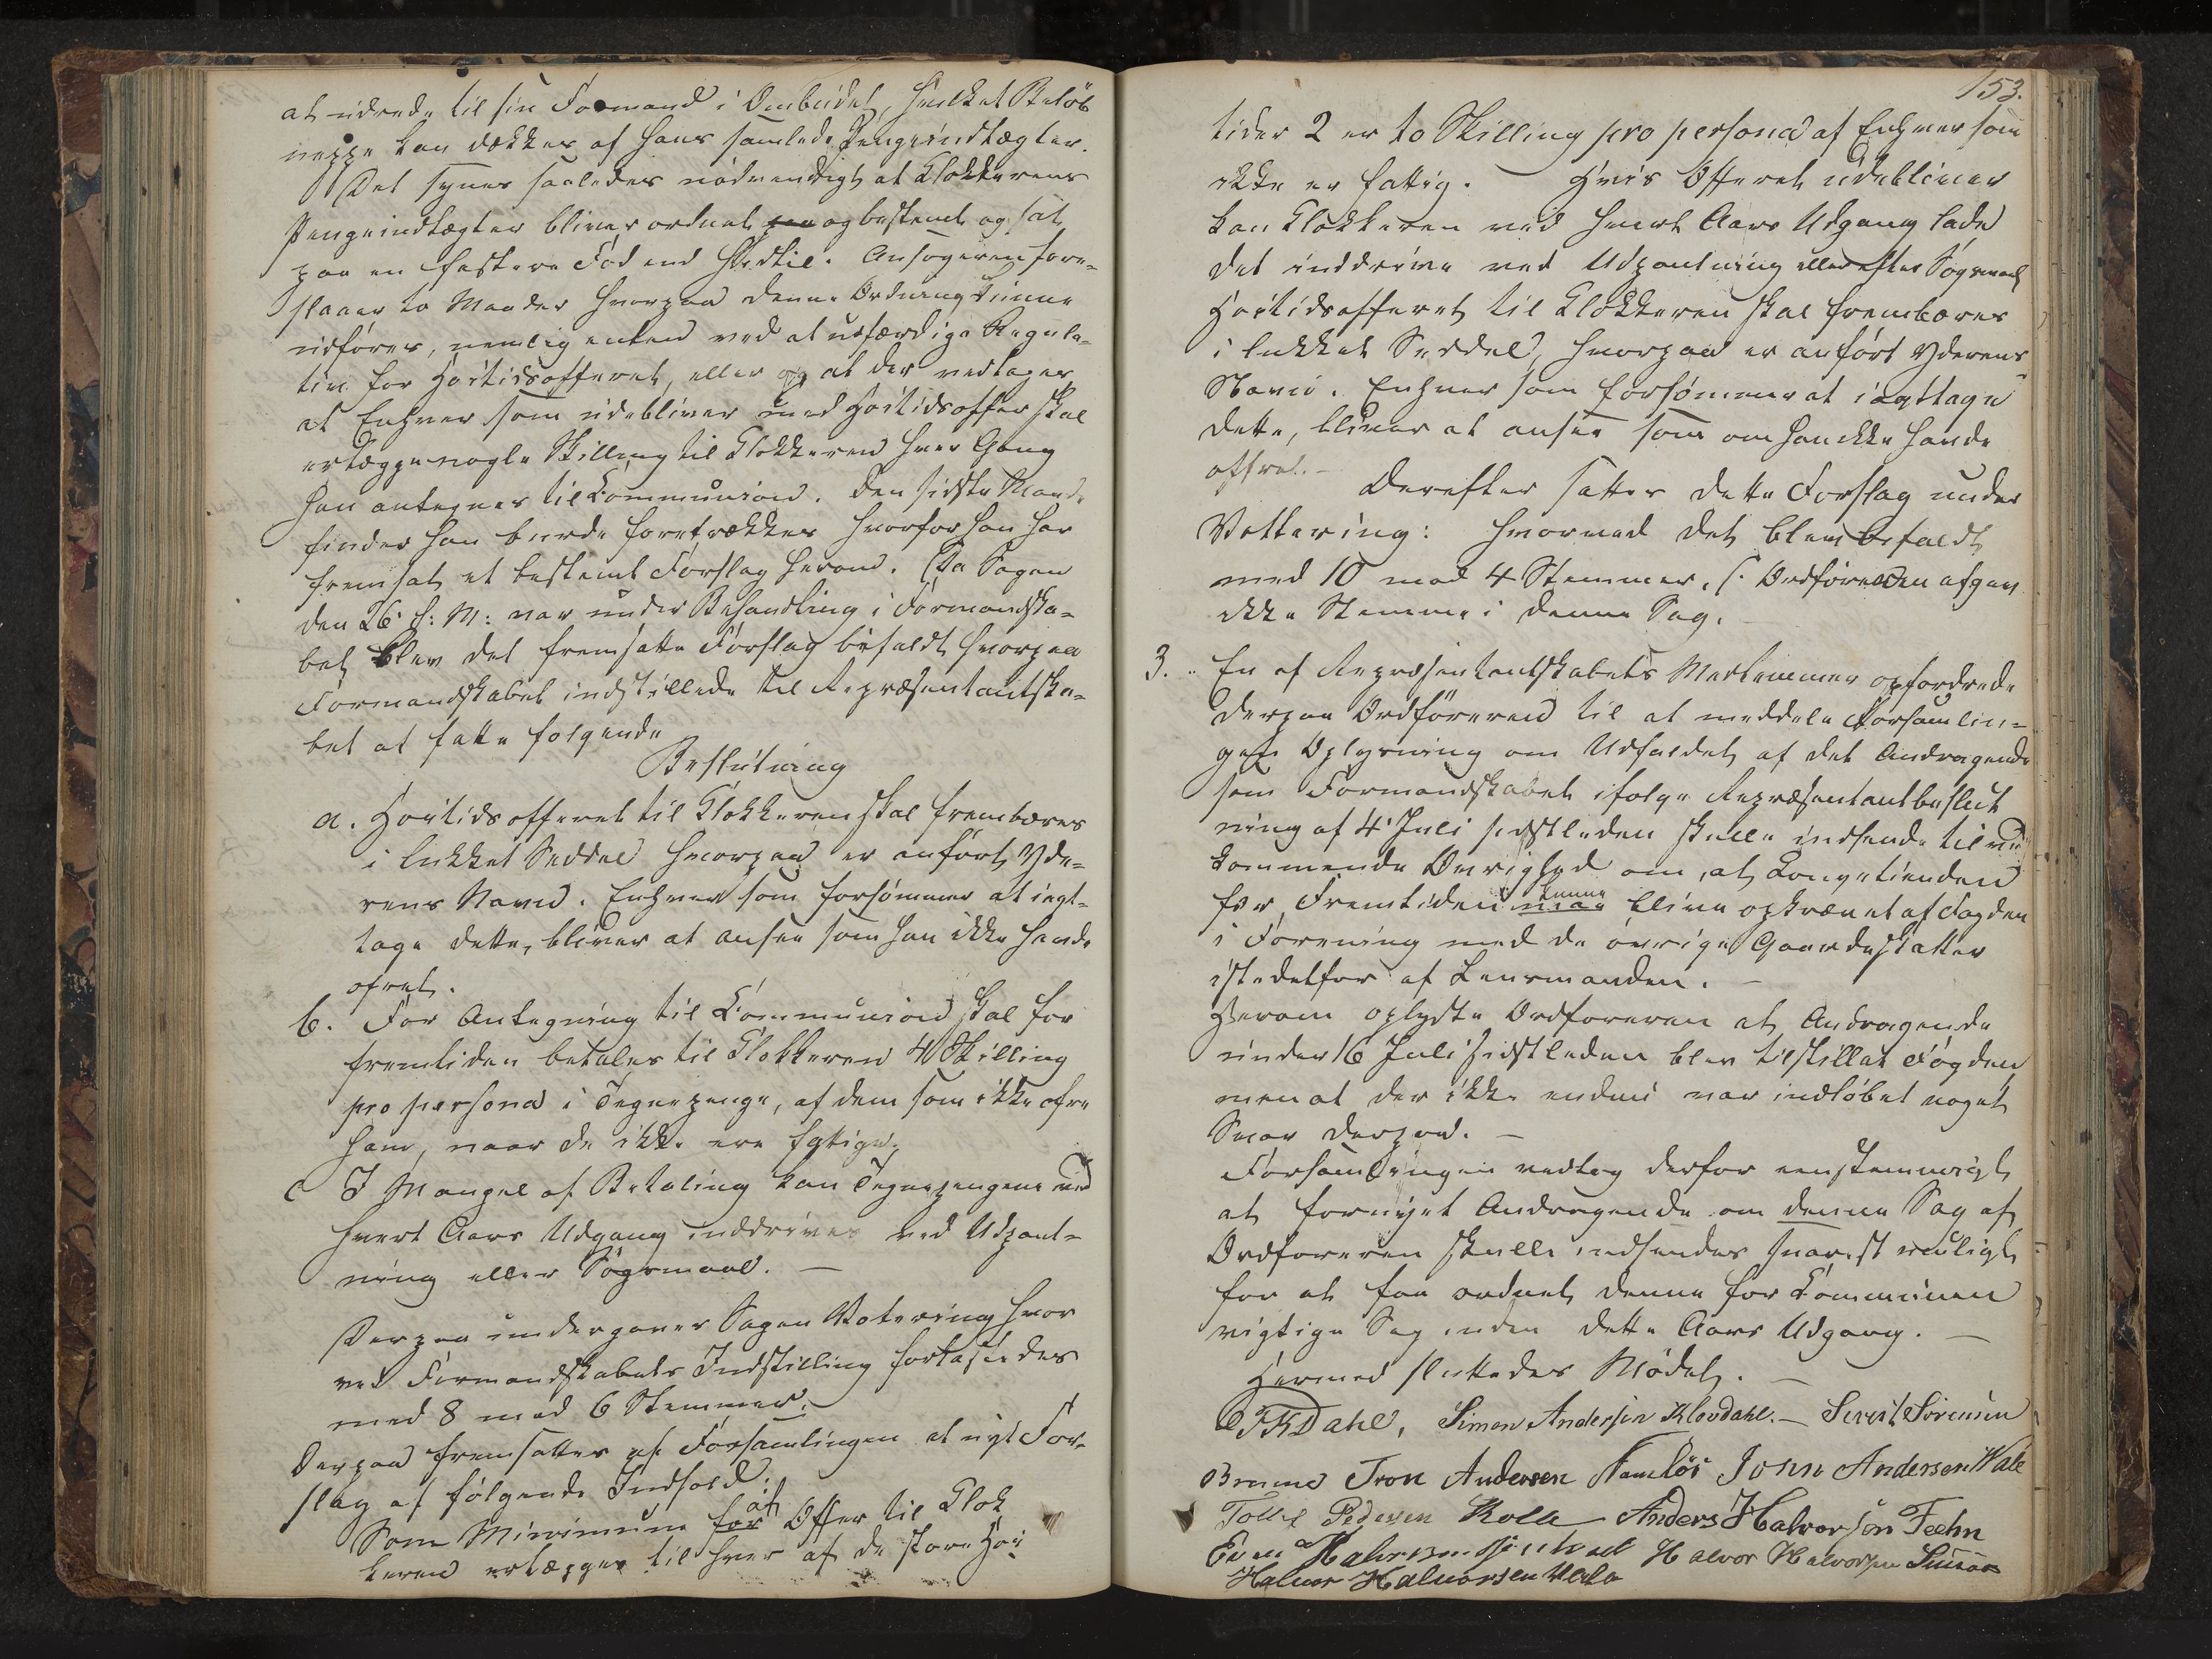 at udrede til sin Formand i Ombudet, hvilket Beløb
neppe kan dækkes af hans samlede Pengeindtægter.
Det synes saaledes nödvendigt at Klokkerens
Pengeindtægter bliver ordnet og bestemt og sat
paa en fastere Fod end hidtil. Ansøgeren fore-
slaaer to Maader hvorpaa denne Ordning kunne
udføres, nemlig enten ved at udfærdige Regula-
tiv for Høitidsofferet, eller og at der vedtages
at Enhver som udebliver med Høitidsoffer skal
erlægge nogle Skilling til Klokkeren hver Gang
han antegnes til Communion. Den sidste Maade
finder han burde foretrækkes hvorfor han har
fremsat et bestemt Forslag herom. Da Sagen
den 26 f: M: var under Behandling i Formandska-
bet blev det fremsatte Forslag bifaldt hvorpaa
Formandskabet indstillede til Repræsentantska-
bet at fatte følgende
Beslutning
a. Høitidsofferet til Klokkeren skal frembæres
i lukket Seddel hvorpaa er anført Yde-
rens Navn. Enhver som forsømmer at iagt-
tage dette, bliver at ansee som han ikke havde
ofret.
b. For Antegning til Communion skal for
fremtiden betales til Klokkeren 4 Skilling
pro persona i Tegnepenge, af dem som ikke ofre
ham, naar de ikke ere fattige.
c I Mangel af Betaling kan Tegnepengene ved
hvert Aars Udgang inddrives ved Udpant-
ning eller Søgsmaal. —
Derpaa undergaves Sagen Votering hvor
ved Formandskabets Indstilling forkastedes
med 8 mod 6 Stemmer.
Derpaa fremsattes af Forsamlingen et nyt For-
slag af følgende Indhold:
Som Minimum for af Offer til Klok
keren erlægges til hver af de store Høi
153.
tider 2 er to Skilling pro persona af Enhver som
ikke er fattig. Hvis Offeret udebliver
kan Klokkeren ved hvert Aars Udgang lade
det inddrive ved Udpantning eller efter Søgsmaal
Høitidsofferet til Klokkeren skal frembæres
i lukket Seddel, hvorpaa er anført Yderens
Navn. Enhver som forsømmer at iagttage
dette, bliver at ansee som om han ikke havde
offret. —
Derefter sattes dette Forslag under
Vottering: hvorved det blev bifaldt
med 10 mod 4 Stemmer. Ordføreren afgav
ikke Stemme i denne Sag.
3. En af Repræsentantskabets Medlemmer opfordrede
derpaa Ordføreren til at meddele Forsamlin-
gen Oplysning om Udfaldet af det Andragende
som Formandskabet ifølge Repræsentantbeslut
ning af 4 Juli sidstleden skulle indsende til ved
kommende Øvrighed om, at Kongetienden
for Fremtiden maa kunne blive opkrævet af Fogden
i Forening med de øvrige Gaardeskatter
istedetfor af Lensmanden. —
Herom oplyste Ordføreren at Andragende
under 16 Juli sidstleden blev tilstillet Fogden
men at der ikke endnu var indløbet noget
Svar derpaa. —
Forsamlingen vedtog derfor eenstemmigt
at fornyet Andragende om denne Sag af
Ordføreren skulle indsendes snarest muligt
for at faa ordnet denne for Communen
vigtige Sag inden dette Aars Udgang. —
Hermed sluttedes Mødet. —
Dahl, Simon Andersen Klovdahl. — Sivert Sörensen
Tron Andersen Jonn Andersen Wale
Pedersen Rolla Anders Halvorsön Teehn
Even Halvorsen Halvor Halvorsen
Halvor Halvorsen